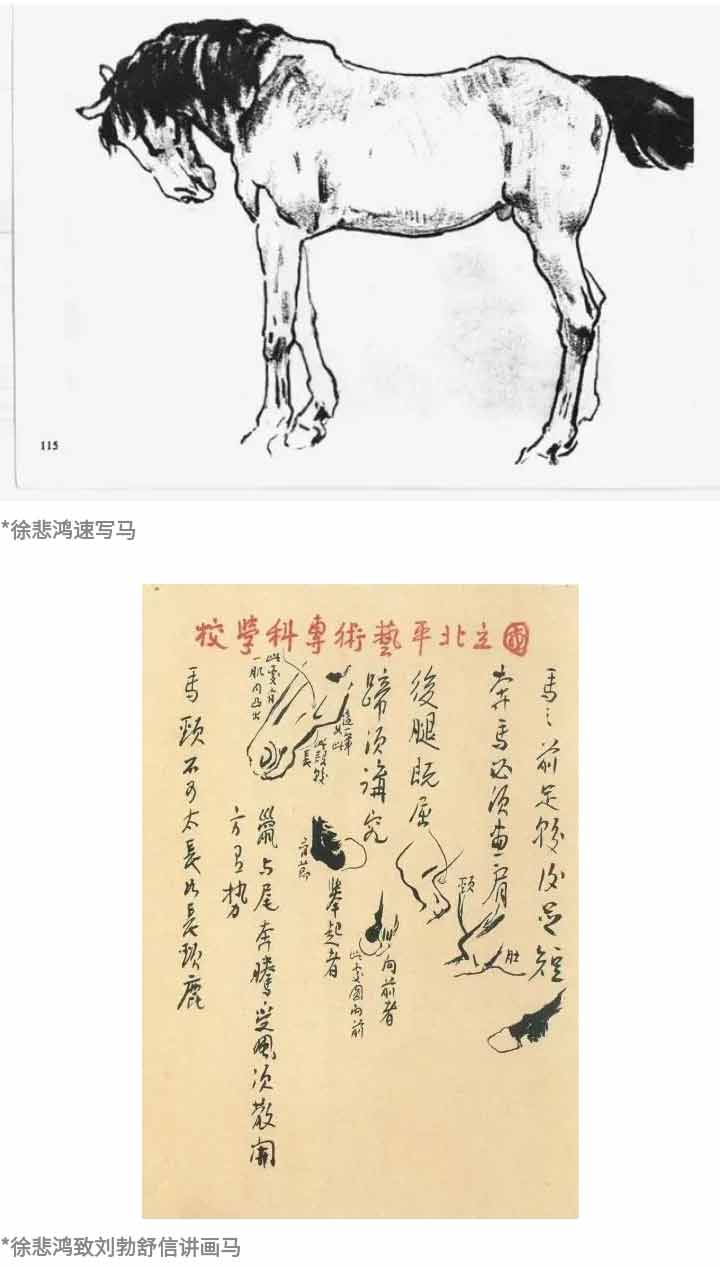 115
*徐悲鸿速写马
國立北平藝術專科學校
馬之前足較後足短
奔馬必須畫肩
頸
肚
後腿既屈
蹄須講究
向前者
此處圓向前
舉起者
有節
這一筆
如此
此段較
長
此處有
一肌肉凸出
鬣与尾奔騰受風須散開
方有势
馬頸不可太長如長頸鹿
*徐悲鸿致刘勃舒信讲画马